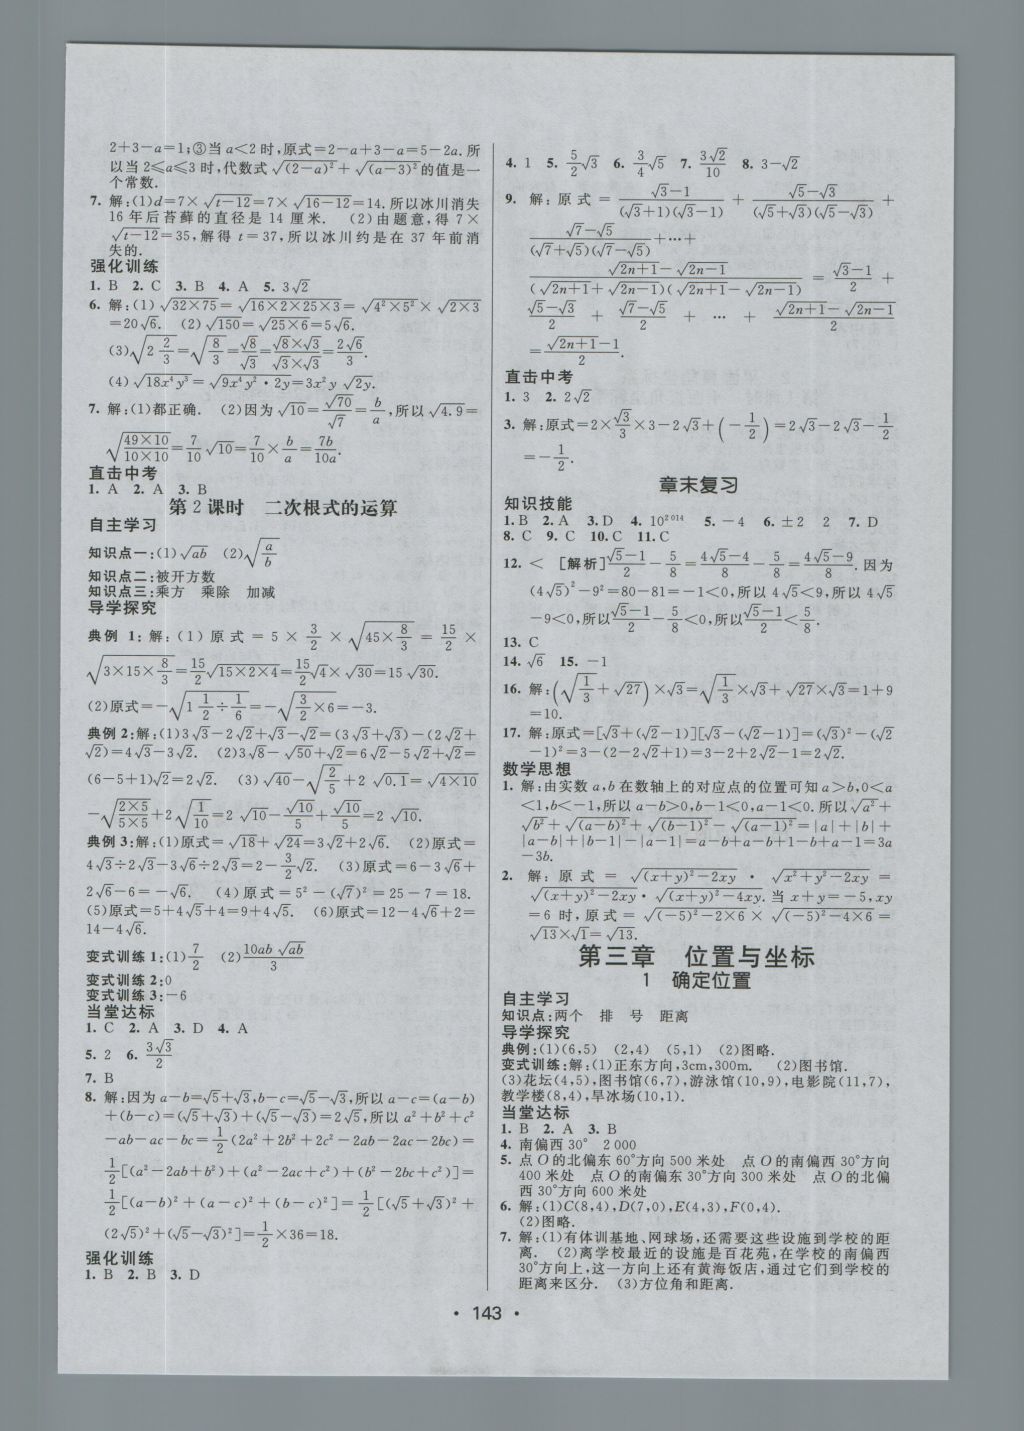 2+3-a=1;③当a<2时,原式=2-a+3-a=5-2a.所
以当2≤a≤3时,代数式√(2-a)²+√(a-3)²的值是一
个常数.
7. 解:(1)d=7×√t-12=7×√16-12=14.所以冰川消失
16年后苔藓的直径是14厘米. (2)由题意,得7×
√t-12=35,解得t=37,所以冰川约是在37年前消
失的.
强化训练
1. B 2. C 3. B 4. A 5. 3√2
6. 解:(1)√32×75=√16×2×25×3=√4²×5²×√2×3
=20√6. (2)√150=√25×6=5√6.
(3)√2 2/3=√8/3=√8/√3=√8×√3/√3×√3=2√6/3.
(4)√18x⁴y³=√9x⁴y²·2y=3x²y√2y.
7. 解:(1)都正确. (2)因为√10=√70/√7=b/a,所以√4.9=
√49×10/10×10=7/10√10=7/10×b/a=7b/10a.
直击中考
1. A 2. A 3. B
第2课时 二次根式的运算
自主学习
知识点一:(1)√ab (2)√a/b
知识点二:被开方数
知识点三:乘方 乘除 加减
导学探究
典例1:解:(1)原式=5×3/2×√45×8/3=15/2×
√3×15×8/3=15/2√15×2×4=15/2√4×√30=15√30.
(2)原式=-√1 1/2÷1/6=-√3/2×6=-3.
典例2:解:(1)3√3-2√2+√3-√2=(3√3+√3)-(2√2+
√2)=4√3-3√2. (2)3√8-√50+√2=6√2-5√2+√2=
(6-5+1)√2=2√2. (3)√40-√2/5+2√0.1=√4×10
-√2×5/5×5+2√1/10=2√10-√10/5+√10/5=2√10.
典例3:解:(1)原式=√18+√24=3√2+2√6. (2)原式=
4√3÷2√3-3√6÷2√3=2-3/2√2. (3)原式=6-3√6+
2√6-6=-√6. (4)原式=5²-(√7)²=25-7=18.
(5)原式=5+4√5+4=9+4√5. (6)原式=12-4√6+2=
14-4√6.
变式训练1:(1)7/2 (2)10ab√ab/3
变式训练2:0
变式训练3:-6
当堂达标
1. C 2. A 3. D 4. A
5. 2 6. 3√3/2
7. B
8. 解:因为a-b=√5+√3,b-c=√5-√3,所以a-c=(a-b)
+(b-c)=(√5+√3)+(√5-√3)=2√5,所以a²+b²+c²
-ab-ac-bc=1/2(2a²+2b²+2c²-2ab-2ac-2bc)=
1/2[(a²-2ab+b²)+(a²-2ac+c²)+(b²-2bc+c²)]=
1/2[(a-b)²+(a-c)²+(b-c)²]=1/2[(√5+√3)²+
(2√5)²+(√5-√3)²]=1/2×36=18.
强化训练
1. B 2. B 3. D
4. 1 5. 5/2√3 6. 3/4√5 7. 3√2/10 8. 3-√2
9. 解:原式=√3-1/(√3+1)(√3-1)+√5-√3/(√5+√3)(√5-√3)+
√7-√5/(√7+√5)(√7-√5)+…+
√2n+1-√2n-1/(√2n+1+√2n-1)(√2n+1-√2n-1)=√3-1/2+
√5-√3/2+√7-√5/2+…+√2n+1-√2n-1/2
=√2n+1-1/2.
直击中考
1. 3 2. 2√2
3. 解:原式=2×√3/3×3-2√3+(-1/2)=2√3-2√3-1/2
=-1/2.
章末复习
知识技能
1. B 2. A 3. D 4. 10²⁰¹⁴ 5. -4 6. ±2 2 7. D
8. C 9. C 10. C 11. C
12. < [解析]√5-1/2-5/8=4√5-4/8-5/8=4√5-9/8.因为
(4√5)²-9²=80-81=-1<0,所以4√5<9,所以4√5
-9<0,所以√5-1/2-5/8<0,所以√5-1/2<5/8.
13. C
14. √6 15. -1
16. 解:(√1/3+√27)×√3=√1/3×√3+√27×√3=1+9
=10.
17. 解:原式=[√3+(√2-1)][√3-(√2-1)]=(√3)²-(√2
-1)²=3-(2-2√2+1)=3-2+2√2-1=2√2.
数学思想
1. 解:由实数a,b在数轴上的对应点的位置可知a>b,0<a
<1,b<-1,所以a-b>0,b-1<0,a-1<0.所以√a²+
√b²+√(a-b)²+√(b-1)²-√(a-1)²=|a|+|b|+
|a-b|+|b-1|-|a-1|=a-b+a-b+1-b+a-1=3a
-3b.
2. 解:原式=√(x+y)²-2xy·√x²+y²-2xy=
√(x+y)²-2xy·√(x+y)²-4xy.当x+y=-5,xy
=6时,原式=√(-5)²-2×6×√(-5)²-4×6=
√13×√1=√13.
第三章 位置与坐标
1 确定位置
自主学习
知识点:两个 排 号 距离
导学探究
典例:(1)(6,5) (2,4) (5,1) (2)图略.
变式训练:解:(1)正东方向,3cm,300m. (2)图书馆.
(3)花坛(4,5),图书馆(6,7),游泳馆(10,9),电影院(11,7),
教学楼(8,4),旱冰场(10,4).
当堂达标
1. B 2. A 3. B
4. 南偏西30° 2 000
5. 点O的北偏东60°方向500米处 点O的南偏西30°方向
400米处 点O的南偏东30°方向300米处 点O的北偏
西30°方向600米处
6. 解:(1)C(8,4),D(7,0),E(4,3),F(0,4).
(2)图略.
7. 解:(1)有体训基地、网球场,还需要这些设施到学校的距
离. (2)离学校最近的设施是百花苑,在学校的南偏西
30°方向上,这一方向上还有黄海饭店,通过它们到学校的
距离来区分. (3)方位角和距离.
• 143 •